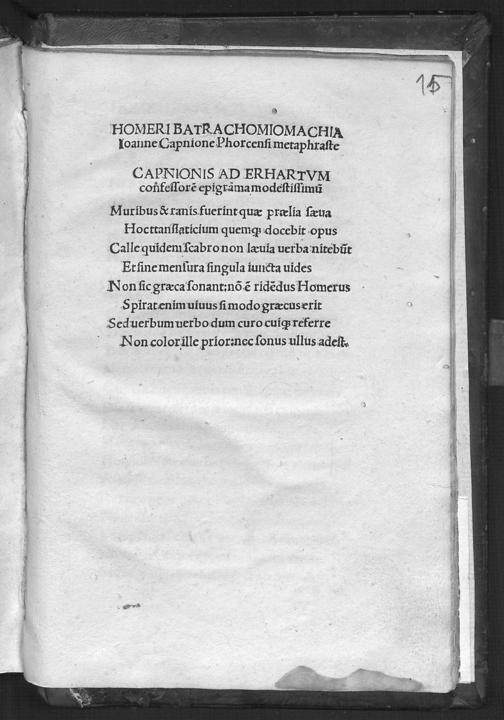 15
HOMERI BATRACHOMIOMACHIA
Ioanne Capnione Phorcensi metaphraste
CAPNIONIS AD ERHARTVM
cōfessorē epigrāma modestissimū
Muribus & ranis fuerint quæ prælia sæua
Hoc translaticium quemqꝫ docebit opus
Calle quidem scabro non læuia uerba nitebūt
Et sine mensura singula iuncta uides
Non sic græca sonant: nō ē ridēdus Homerus
Spirat enim uiuus si modo græcus erit
Sed uerbum uerbo dum curo cuiqꝫ referre
Non color ille prior: nec sonus ullus adest.